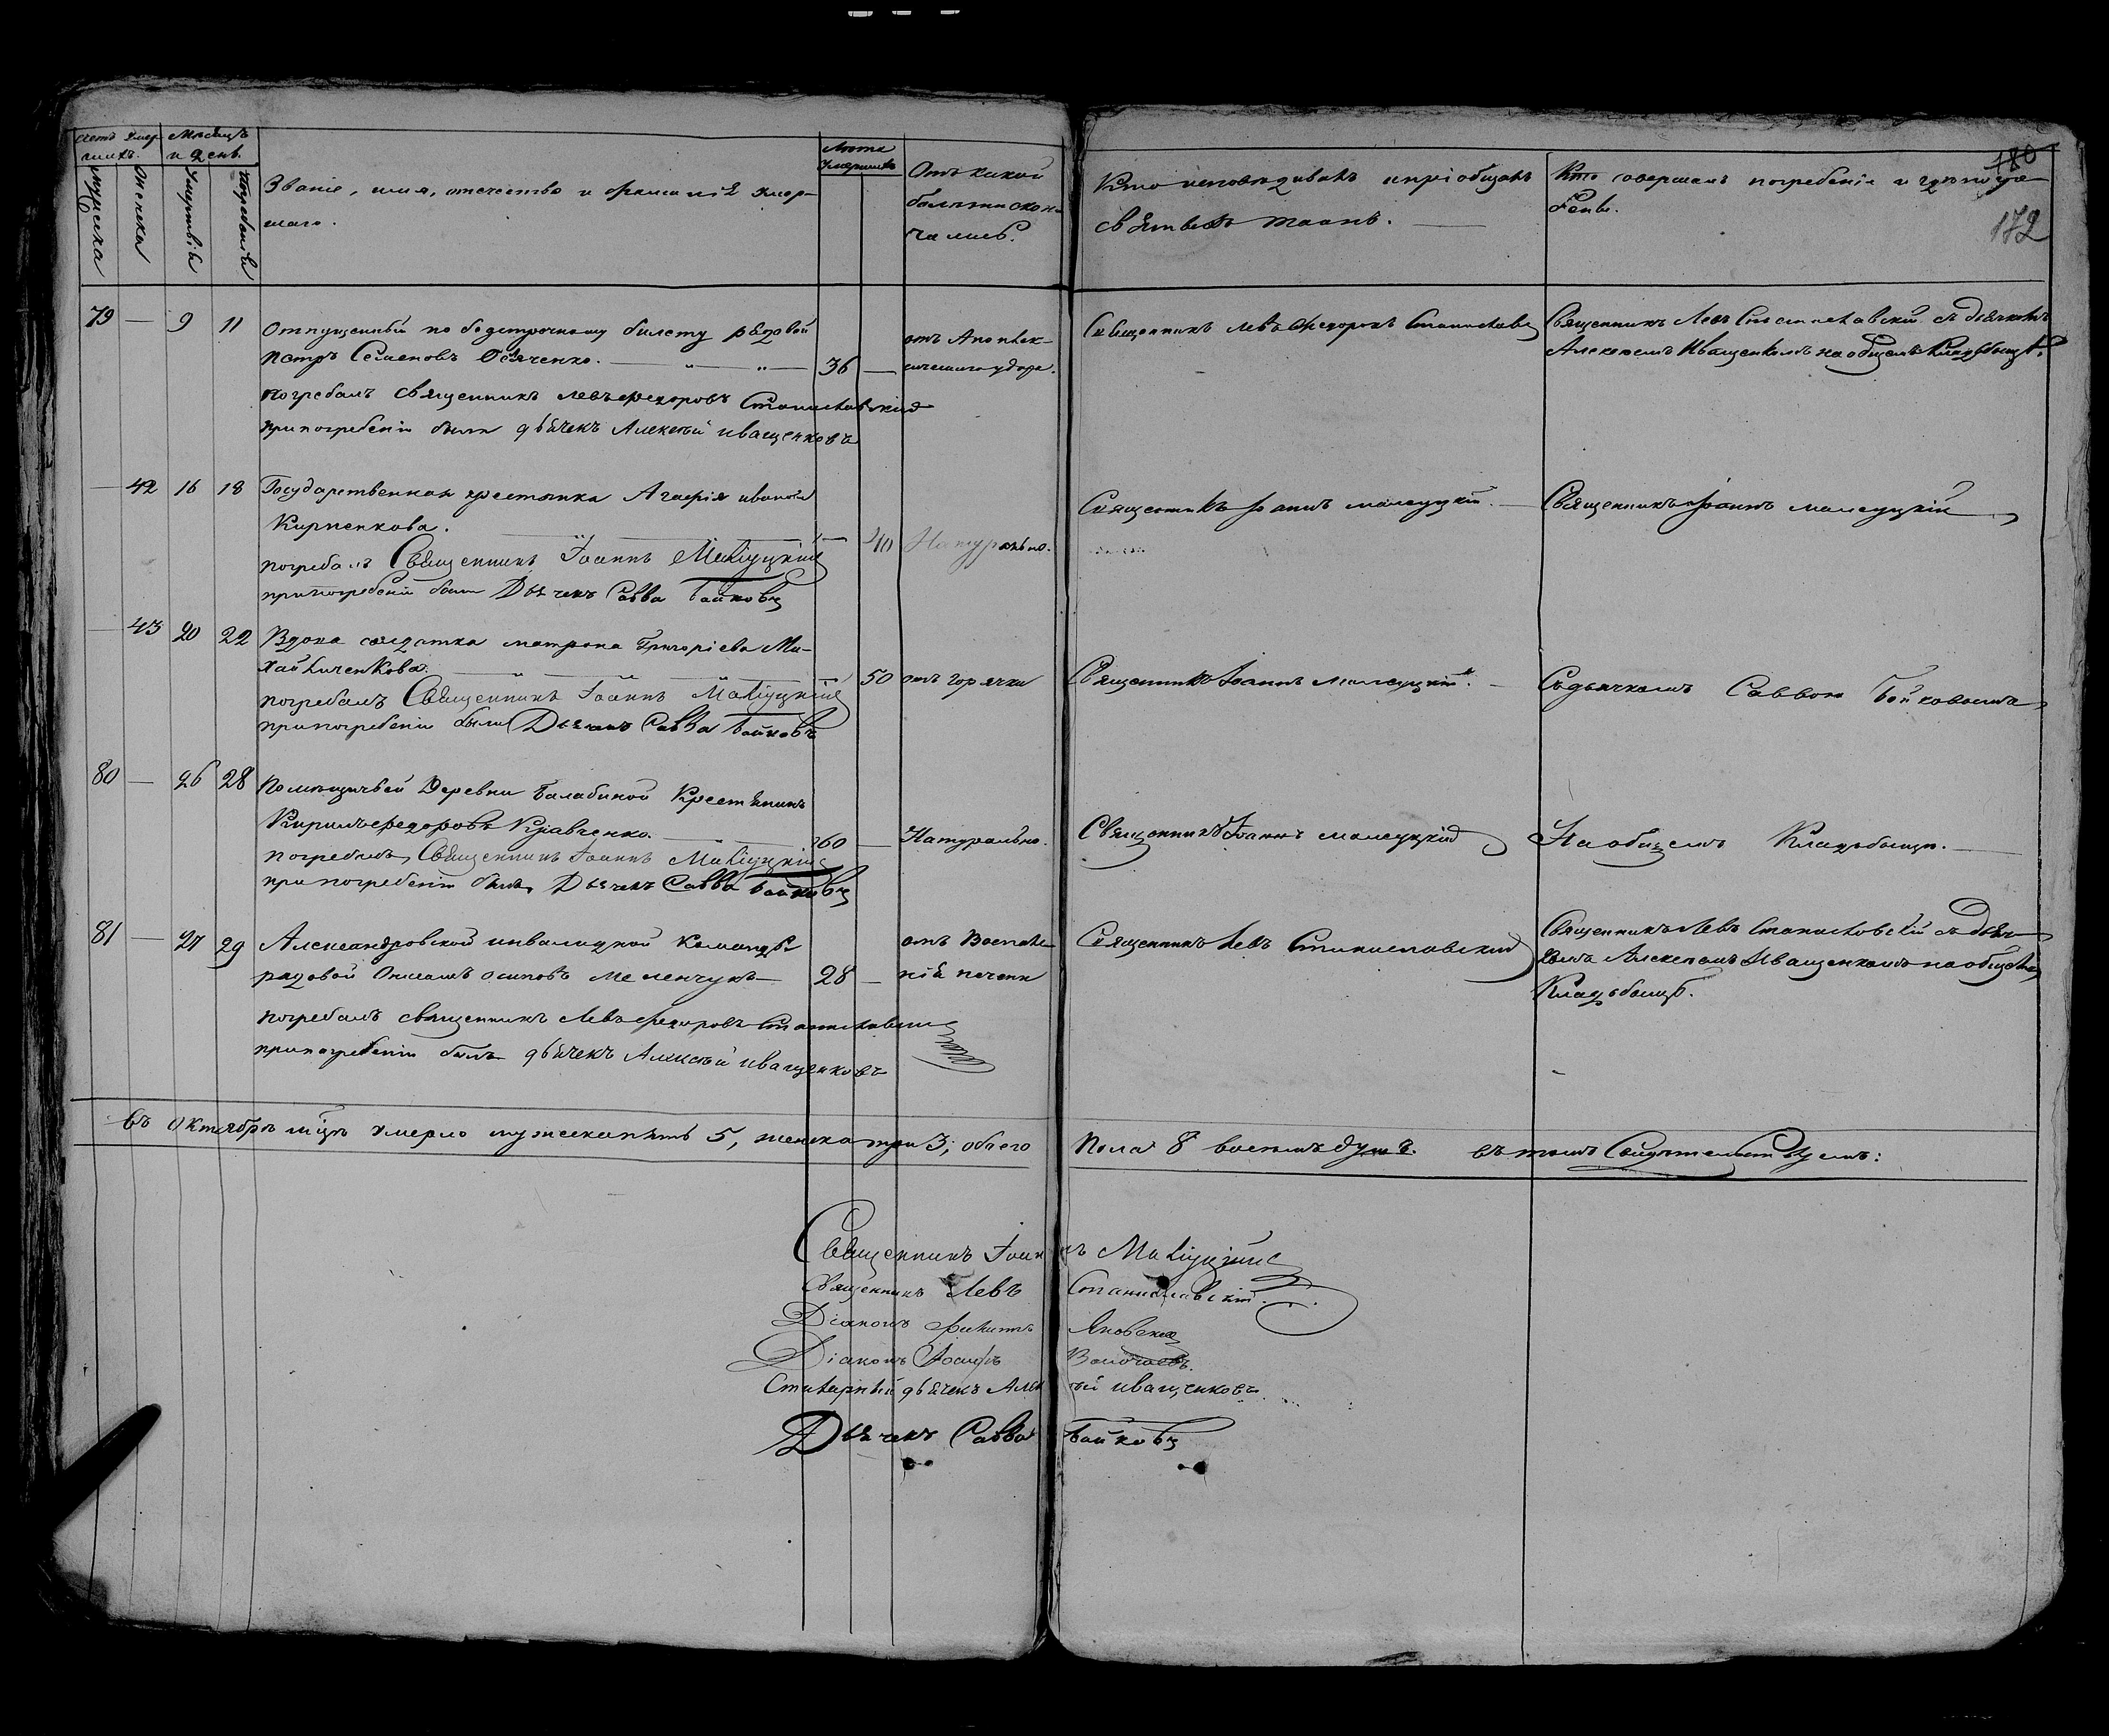 Счетъ умер-
шихъ.
Мѣсяцъ
и день.
мужеска
женска
Смерти
погребенія
Званіе, имя, отчество и фамилія умер-
шаго.
Лѣта
умершихъ
Отъ какой
болѣзни скон-
чались.
Кто исповѣдывалъ и пріобщалъ
святыхъ таинъ.
Кто совершалъ погребеніе и гдѣ погре-
бены.
180
172
79 — 9 11 Отпущенный по безсрочному билету рядовой
Петръ Семеновъ 36 —
отъ Апоплек-
сическаго удара.
погребалъ священникъ Левъ Федоровъ Станиславскій
при погребеніи былъ дьячекъ Алексѣй Иващенковъ
Священникъ Левъ Федоровъ Станиславскій
Священникъ Левъ Станиславскій съ дьячкомъ
Алексѣемъ Иващенкомъ на общемъ кладбищѣ.
— 42 16 18 Государственная крестьянка Агафія Иванова
Кирпенкова. — 40 Натурально.
погребалъ Священникъ Іоаннъ Малѣуцкій
при погребеніи былъ Дьячекъ Савва Байковъ
Священникъ Іоаннъ Малеуцкій.
Священникъ Іоаннъ Малеуцкій
— 43 20 22 Вдова солдатка Матрона Григоріева Ми-
хайличенкова. 50 отъ горячки
погребалъ Священникъ Іоаннъ Малѣуцкій
при погребеніи былъ Дьячекъ Савва Байковъ
Священникъ Іоаннъ Малеуцкій.
Съ дьячкомъ Саввою Байковымъ
80 — 26 28 Помѣщичьей Деревни Балабиной Крестьянинъ
Кирилъ Федоровъ Кравченко. 60 — Натурально.
погребалъ Священникъ Іоаннъ Малѣуцкій
при погребеніи былъ Дьячекъ Савва Байковъ
Священникъ Іоаннъ Малеуцкій
На общемъ Кладбищѣ.
81 — 27 29 Александровской инвалидной команды
рядовой Осиповъ Меленчукъ 28 —
отъ Воспале-
нія печени
погребалъ священникъ Левъ Федоровъ Станиславскій
при погребеніи былъ дьячекъ Алексѣй Иващенковъ
Священникъ Левъ Станиславскій
Священникъ Левъ Станиславскій съ дьяч-
комъ Алексѣемъ Иващенкомъ на общемъ
Кладбищѣ.
въ Октябрѣ мцѣ умерло мужеска пять 5, женска три 3; обоего пола 8 восемь душъ. въ томъ Свидѣтельствуемъ:
Священникъ Іоаннъ Малѣуцкій
Священникъ Левъ Станиславскій.
Діаконъ Яновскій
Діаконъ
Стихарный дьячекъ Алексѣй Иващенковъ
Дьячекъ Савва Байковъ